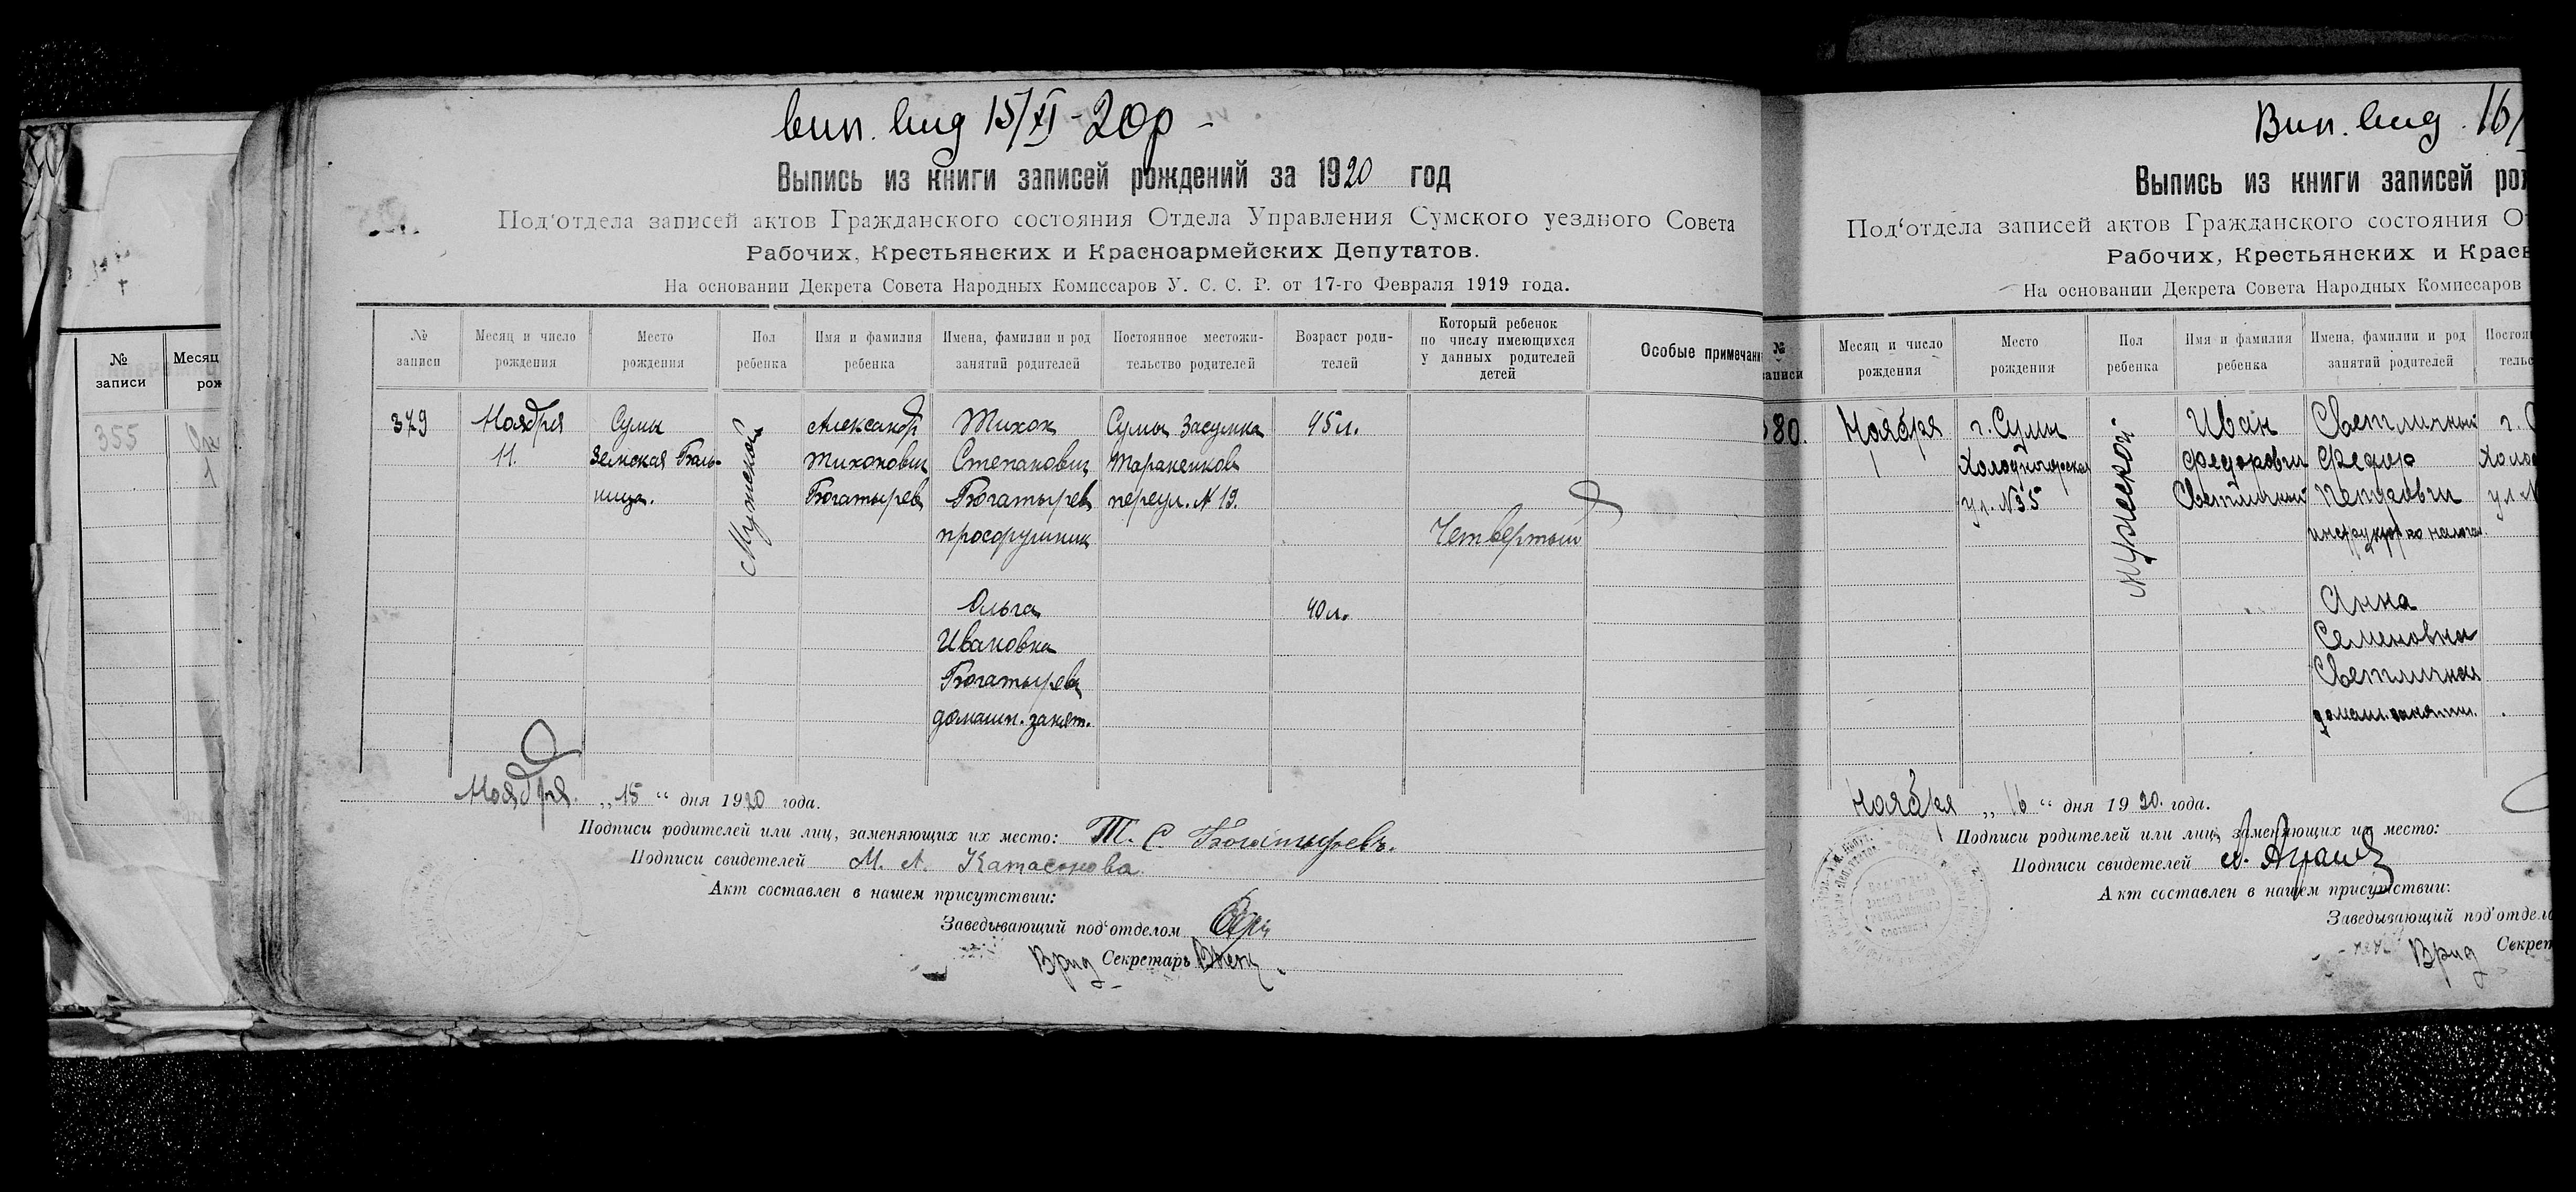 №
записи
Месяц
рож
355
1
вип. вид 15/XI - 20р -
Выпись из книги записей рождений за 1920 год
Под'отдела записей актов Гражданского состояния Отдела Управления Сумского уездного Совета
Рабочих, Крестьянских и Красноармейских Депутатов.
На основании Декрета Совета Народных Комиссаров У. С. С. Р. от 17-го Февраля 1919 года.
№ записи
Месяц и число рождения
Место рождения
Пол ребенка
Имя и фамилия ребенка
Имена, фамилии и род занятий родителей
Постоянное местожи-
тельство родителей
Возраст роди-
телей
Который ребенок
по числу имеющихся
у данных родителей
детей
Особые примечани
379
Ноября
11.
Сумы
Земская Боль-
ница.
Мужской
Александр
Тихонович
Богатырев
Тихон
Степанович
Богатырев
просфорник
Сумы Засумка
Тараненков
переул. № 19.
45 л.
Четвертый
Ольга
Ивановна
Богатырев
домашн. занят.
40 л.
Ноября „15“ дня 1920 года.
Подписи родителей или лиц, заменяющих их место: Т. С. Богатыревъ.
Подписи свидетелей М. А. Катасонова
Акт составлен в нашем присутствии:
Заведывающий под'отделом
Врид Секретарь
Вип. вид. 16/
Выпись из книги записей рож
Под'отдела записей актов Гражданского состояния От
Рабочих, Крестьянских и Красн
На основании Декрета Совета Народных Комиссаров
№
записи
Месяц и число рождения
Место рождения
Пол ребенка
Имя и фамилия ребенка
Имена, фамилии и род занятий родителей
Постоян
тельс
80.
Ноября
1
г. Сумы
Холодногорская
ул. № 35
мужеской
Иван
Федорович
Светличный
Светличный
Федор
Петрович
г. С
Холод
ул. №
Анна
Семеновна
Светличная
домаш. занятия.
Ноября „16“ дня 1920. года.
Подписи родителей или лиц, заменяющих их место:
Подписи свидетелей
Акт составлен в нашем присутствии:
Заведывающий под'отдело
Врид Секрет